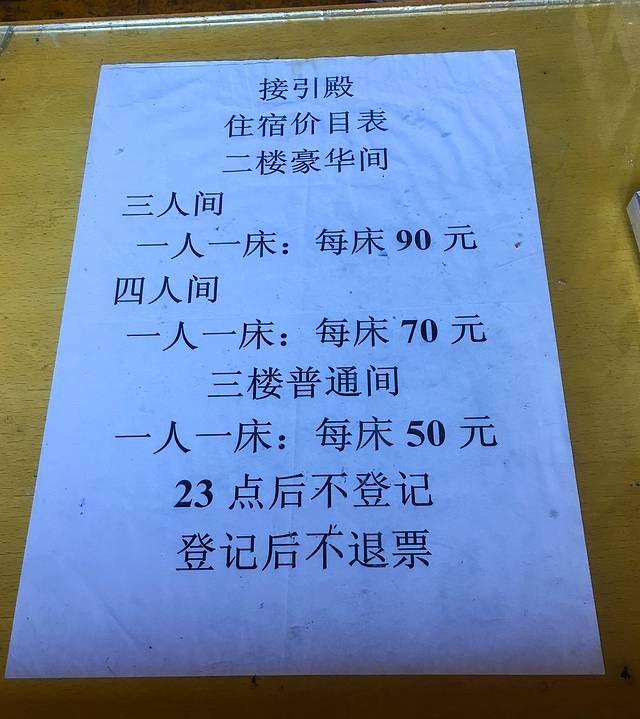 接引殿
住宿价目表
二楼豪华间
三人间
一人一床：每床 90 元
四人间
一人一床：每床 70 元
三楼普通间
一人一床：每床 50 元
23 点后不登记
登记后不退票